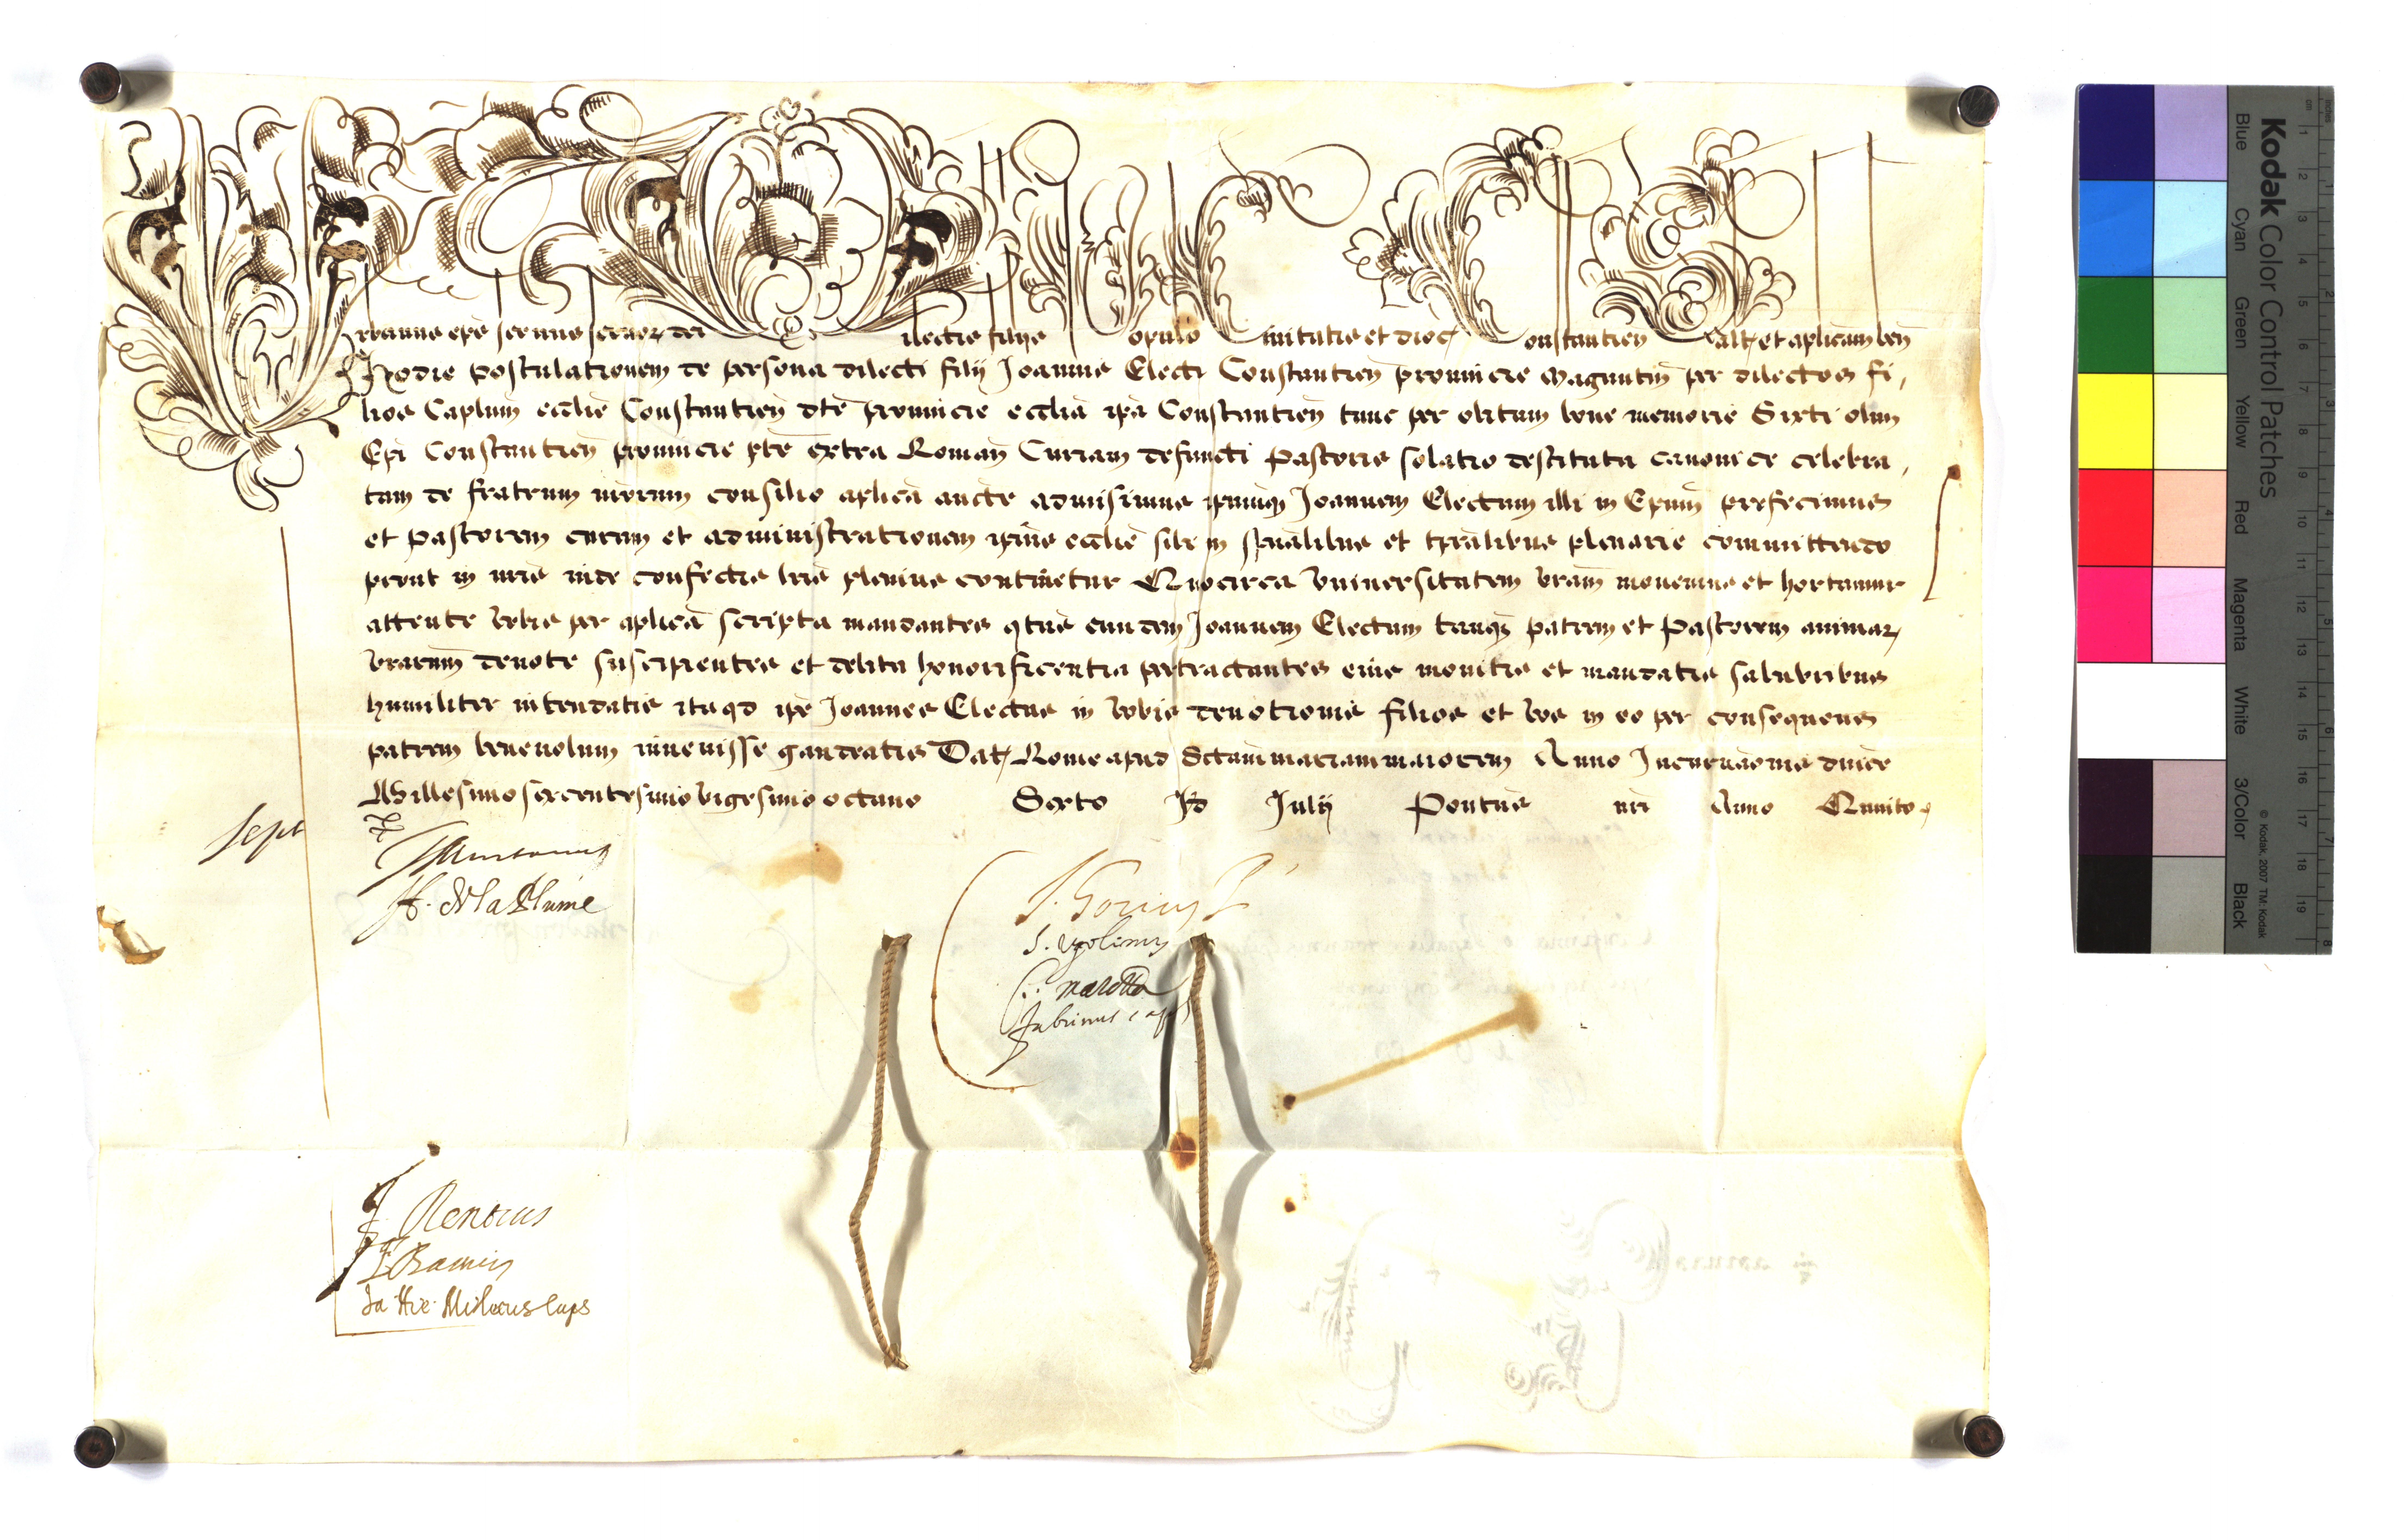 Vrbanus epūs seruus seruoꝝ dei Dilectis filijs Populo Ciuitatis et dioc̄ Constantien̄ Salt̄ et aplicam ben̄
Hodie postulationem de persona dilecti filij Joannis Electi Constantien̄ prouincie Maguntin̄ per dilectos fi,
lios Caplum̄ ecclie Constantien̄ dtē prouincie ecclia ipā Constantien̄ tunc per obitum bone memorie Sixti olim
Epi Constantien̄ prouincie ptē extra Roman̄ Curiam defuncti Pastoris solatio destituta canonice celebra,
tam de fratrum nrorum consilio aplica aucte admisimus ipumq̄ Joannem Electum illi in Epum̄ prefecimus
et Pastorem curam et administrationem ipius ecclie sibi in spualibus et tpralibus plenarie committendo
prout in nris inde confectis lris plenius continetur Quocirca Vniuersitatem vram̄ monemus et hortamur
attente vobis per aplica scripta mandantes qtus eundem Joannem Electum tanq̄ patrem et Pastorem animaꝝ
vrarum̄ deuote suscipientes et debita honorificentia pertractantes eius monitis et mandatis salubribus
humiliter intendatis ita qd ipe Joannes Electus in vobis deuotionis filios et vos in eo per consequens
patrem beneuolum inuenisse gaudeatis Dat̄ Rome apud Sctam mariam maiorem Anno Incarnaōnis dnice
Millesimo sexcentesimo vigesimo octauo Sexto Kł Julij Pontus nri Anno Quinto
sept
H. de la Plume
S. Vgolinus